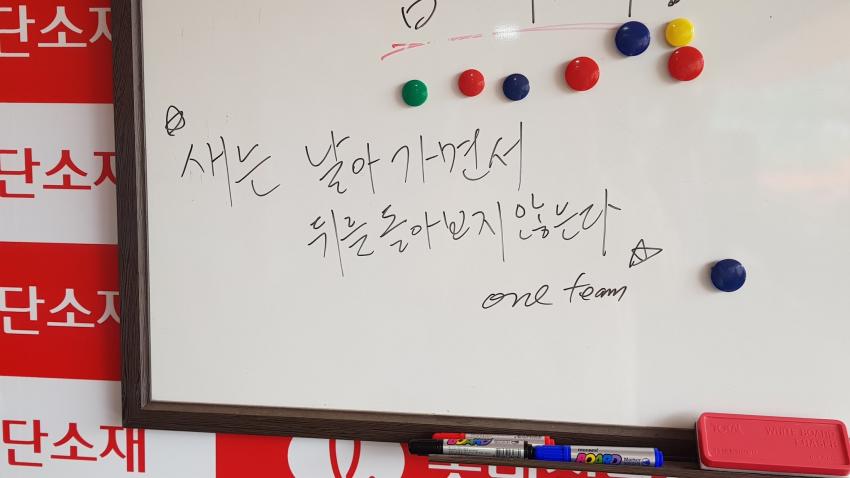 단소재
단소재
단소재
단소재
새는 날아가면서
뒤를 돌아보지 않는다
one team
BOARD
BOARD Marker
TOTAL WHITE BOARD ERASER